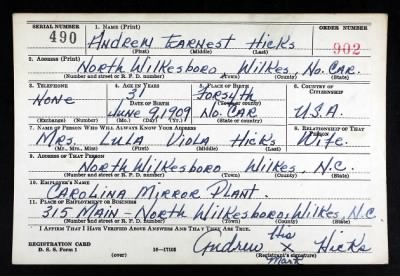 SERIAL NUMBER 1. NAME (Print) ORDER NUMBER
490 ANDREW EARNEST HICKS 902
(First) (Middle) (Last)
2. ADDRESS (Print)
NORTH WILKESBORO WILKES, NO. CAR.
(Number and street or R. F. D. number) (Town) (County) (State)
3. TELEPHONE 4. AGE IN YEARS 5. PLACE OF BIRTH 6. COUNTRY OF CITIZENSHIP
31 FORSYTH
NONE DATE OF BIRTH (Town or county)
JUNE 9, 1909 NO. CAR U.S.A.
(Exchange) (Number) (Mo.) (Day) (Yr.) (State or country)
7. NAME OF PERSON WHO WILL ALWAYS KNOW YOUR ADDRESS 8. RELATIONSHIP OF THAT PERSON
MRS. LULA VIOLA HICKS WIFE.
(Mr., Mrs., Miss) (First) (Middle) (Last)
9. ADDRESS OF THAT PERSON
NORTH WILKESBORO WILKES, N.C.
(Number and street or R. F. D. number) (Town) (County) (State)
10. EMPLOYER'S NAME
CAROLINA MIRROR PLANT.
11. PLACE OF EMPLOYMENT OR BUSINESS
315 MAIN - NORTH WILKESBORO, WILKES, N.C.
(Number and street or R. F. D. number) (Town) (County) (State)
I AFFIRM THAT I HAVE VERIFIED ABOVE ANSWERS AND THAT THEY ARE TRUE.
his
Andrew X Hicks
REGISTRATION CARD
D. S. S. Form 1 16—17105 (Registrant's signature)
(over) Mark